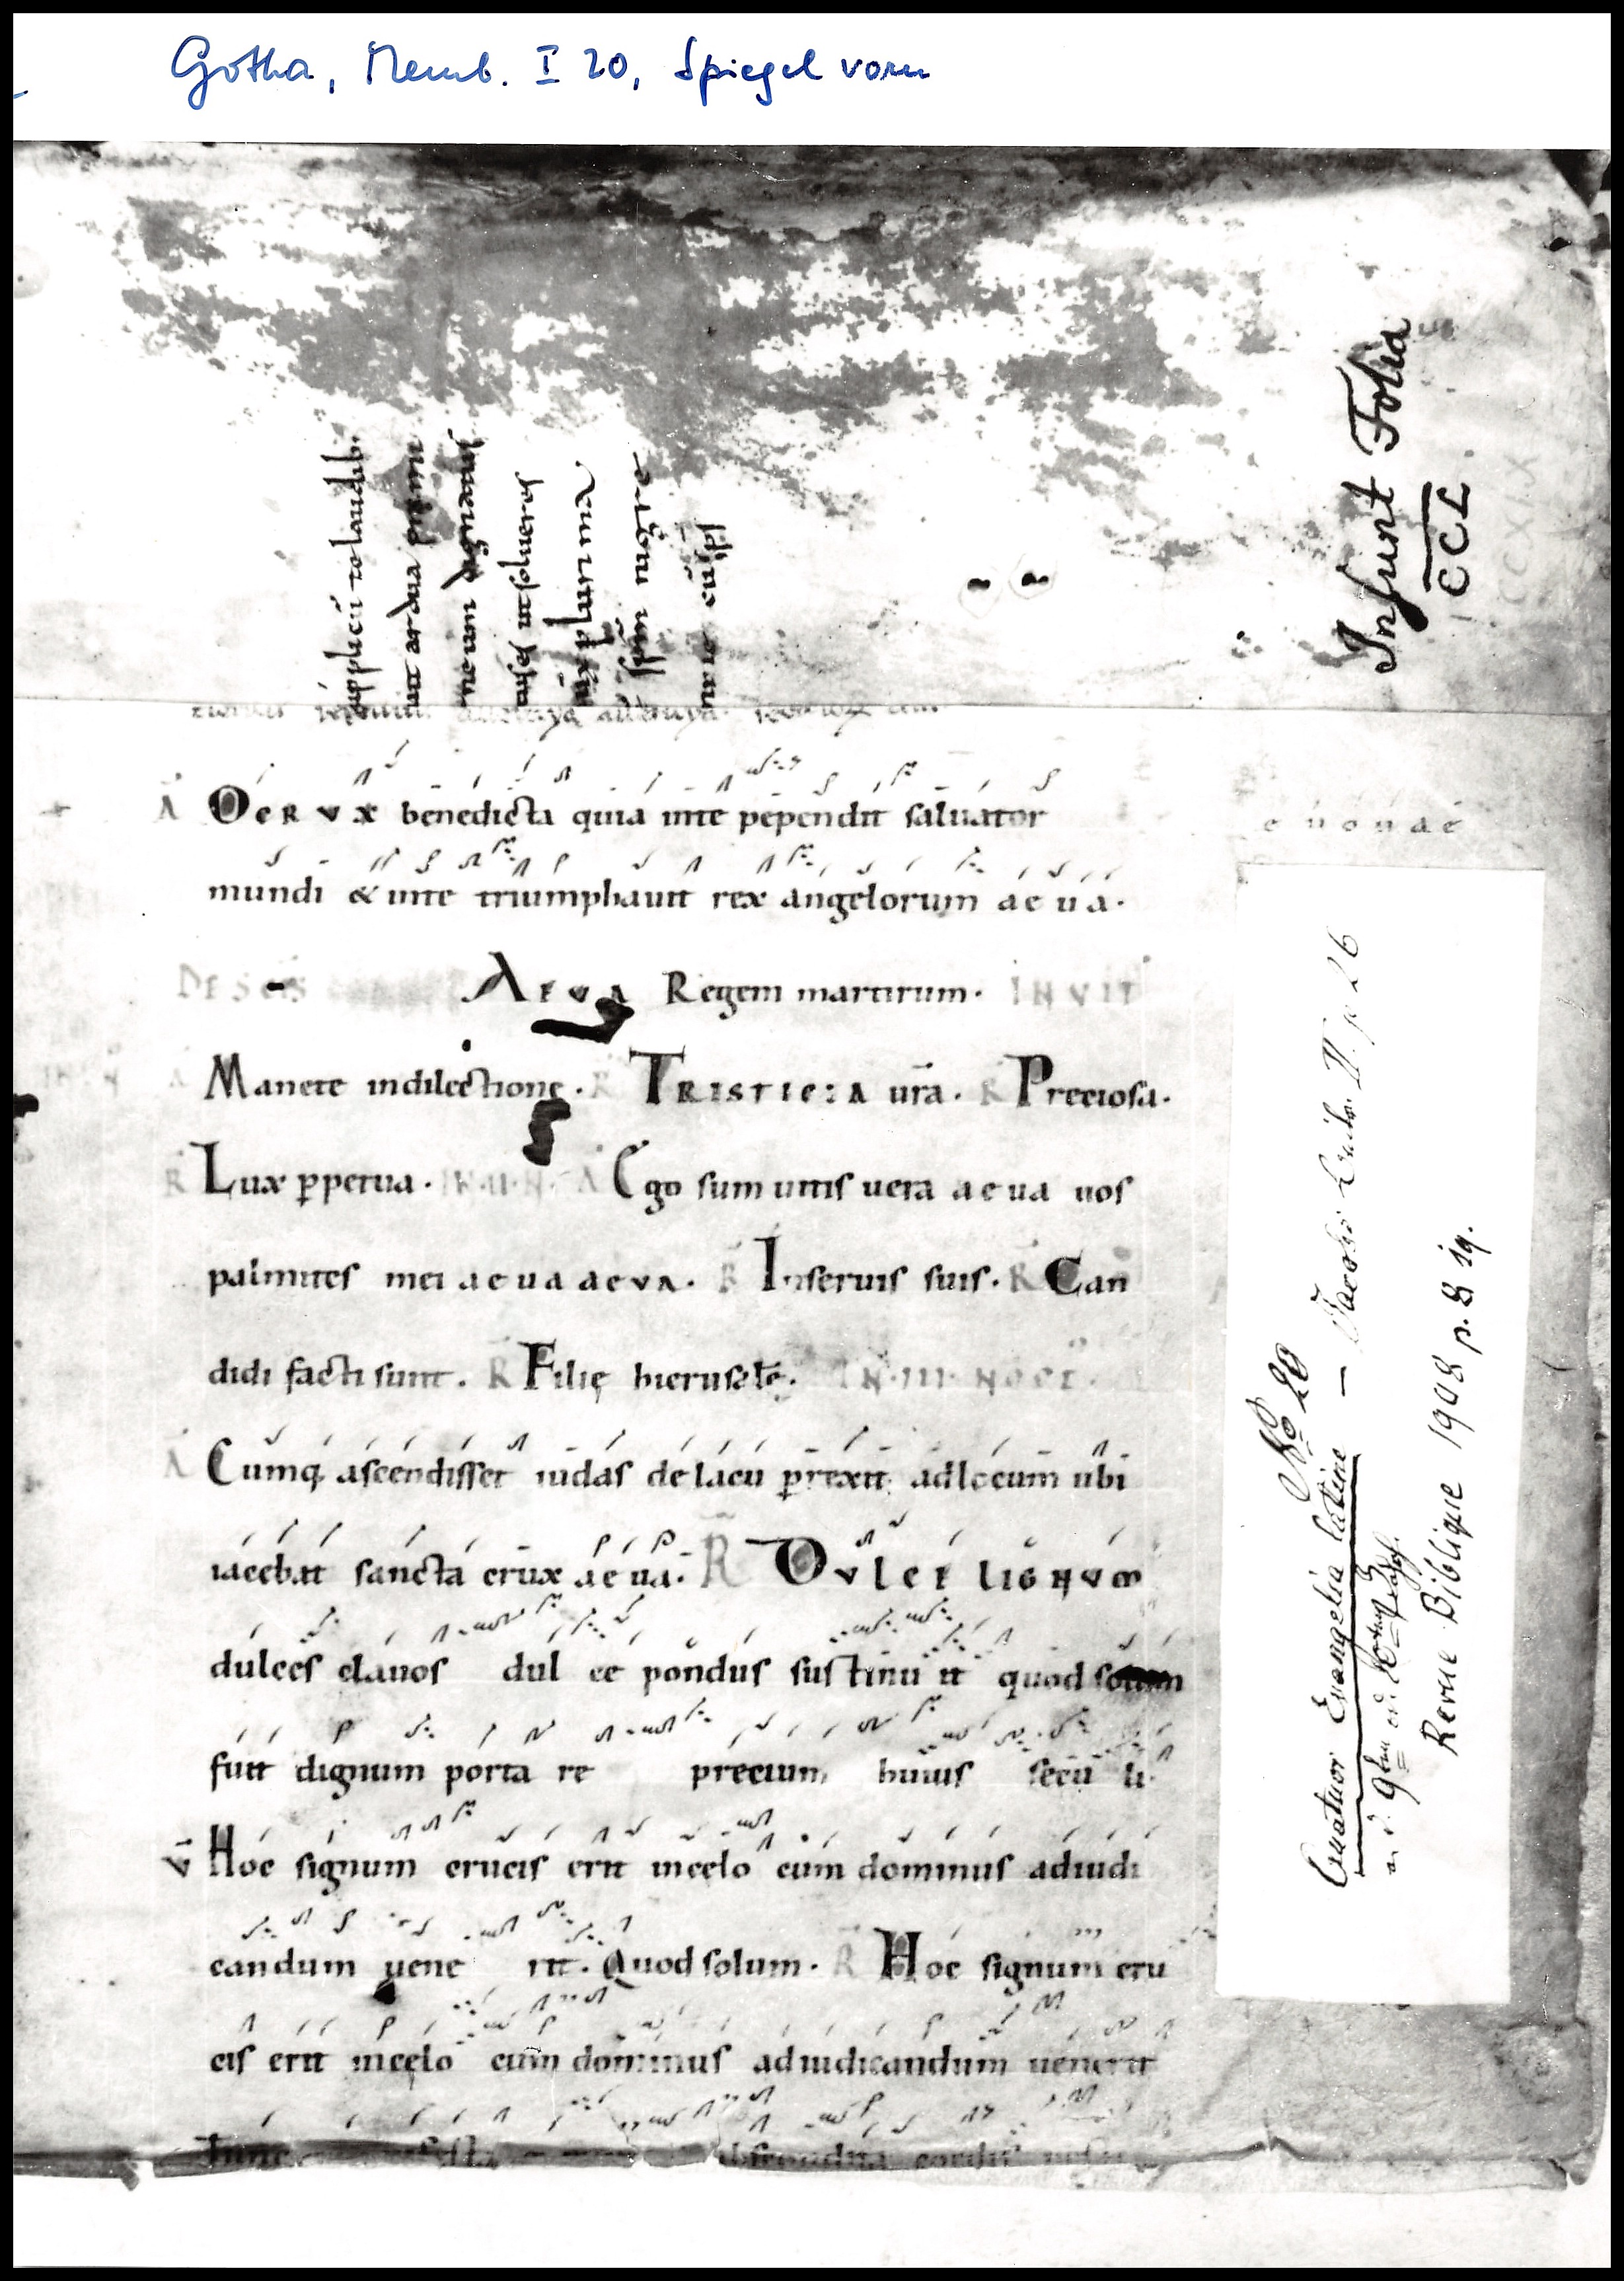 Gotha, Memb. I 20, Spiegel vorn
Insunt Folia
CCL
CCXIX
supplicū to laudib;
ut ardua
neum dignatus
ut solueres
plurima
A O CRVX benedicta quia inte pependit saluator e u o u a e
mundi & inte triumphauit rex angelorum aeua.
DE SCIS AEVA Regem martirum. INVIT
A Manete indilectione. R TRISTICIA ura. R Preciosa.
R Lux ꝑpetua. IN .II. N. A Ego sum uitis uera aeua uos
palmites mei aeua aeva. R Inseruis suis. R Can
didi facti sunt. R Filię hierusalē. IN .III. NOCT.
A Cumq; ascendisset iudas de lacu ꝑrexit adlocum ubi
iacebat sancta crux aeua. R DVLCE LIGNVM
dulces clauos dulce pondus sustinuit quod solum
fuit dignum portare precium huius seculi
V Hoc signum crucis erit incelo cum dominus adiudi
candum uenerit. Quod solum. R Hoc signum cru
cis erit incęlo cum dominus adiudicandum uenerit
Tunc abscondita cordis
No 20
Quatuor Evangelia latine — Jacobs
Revue Biblique 1908 p. 8 sq.